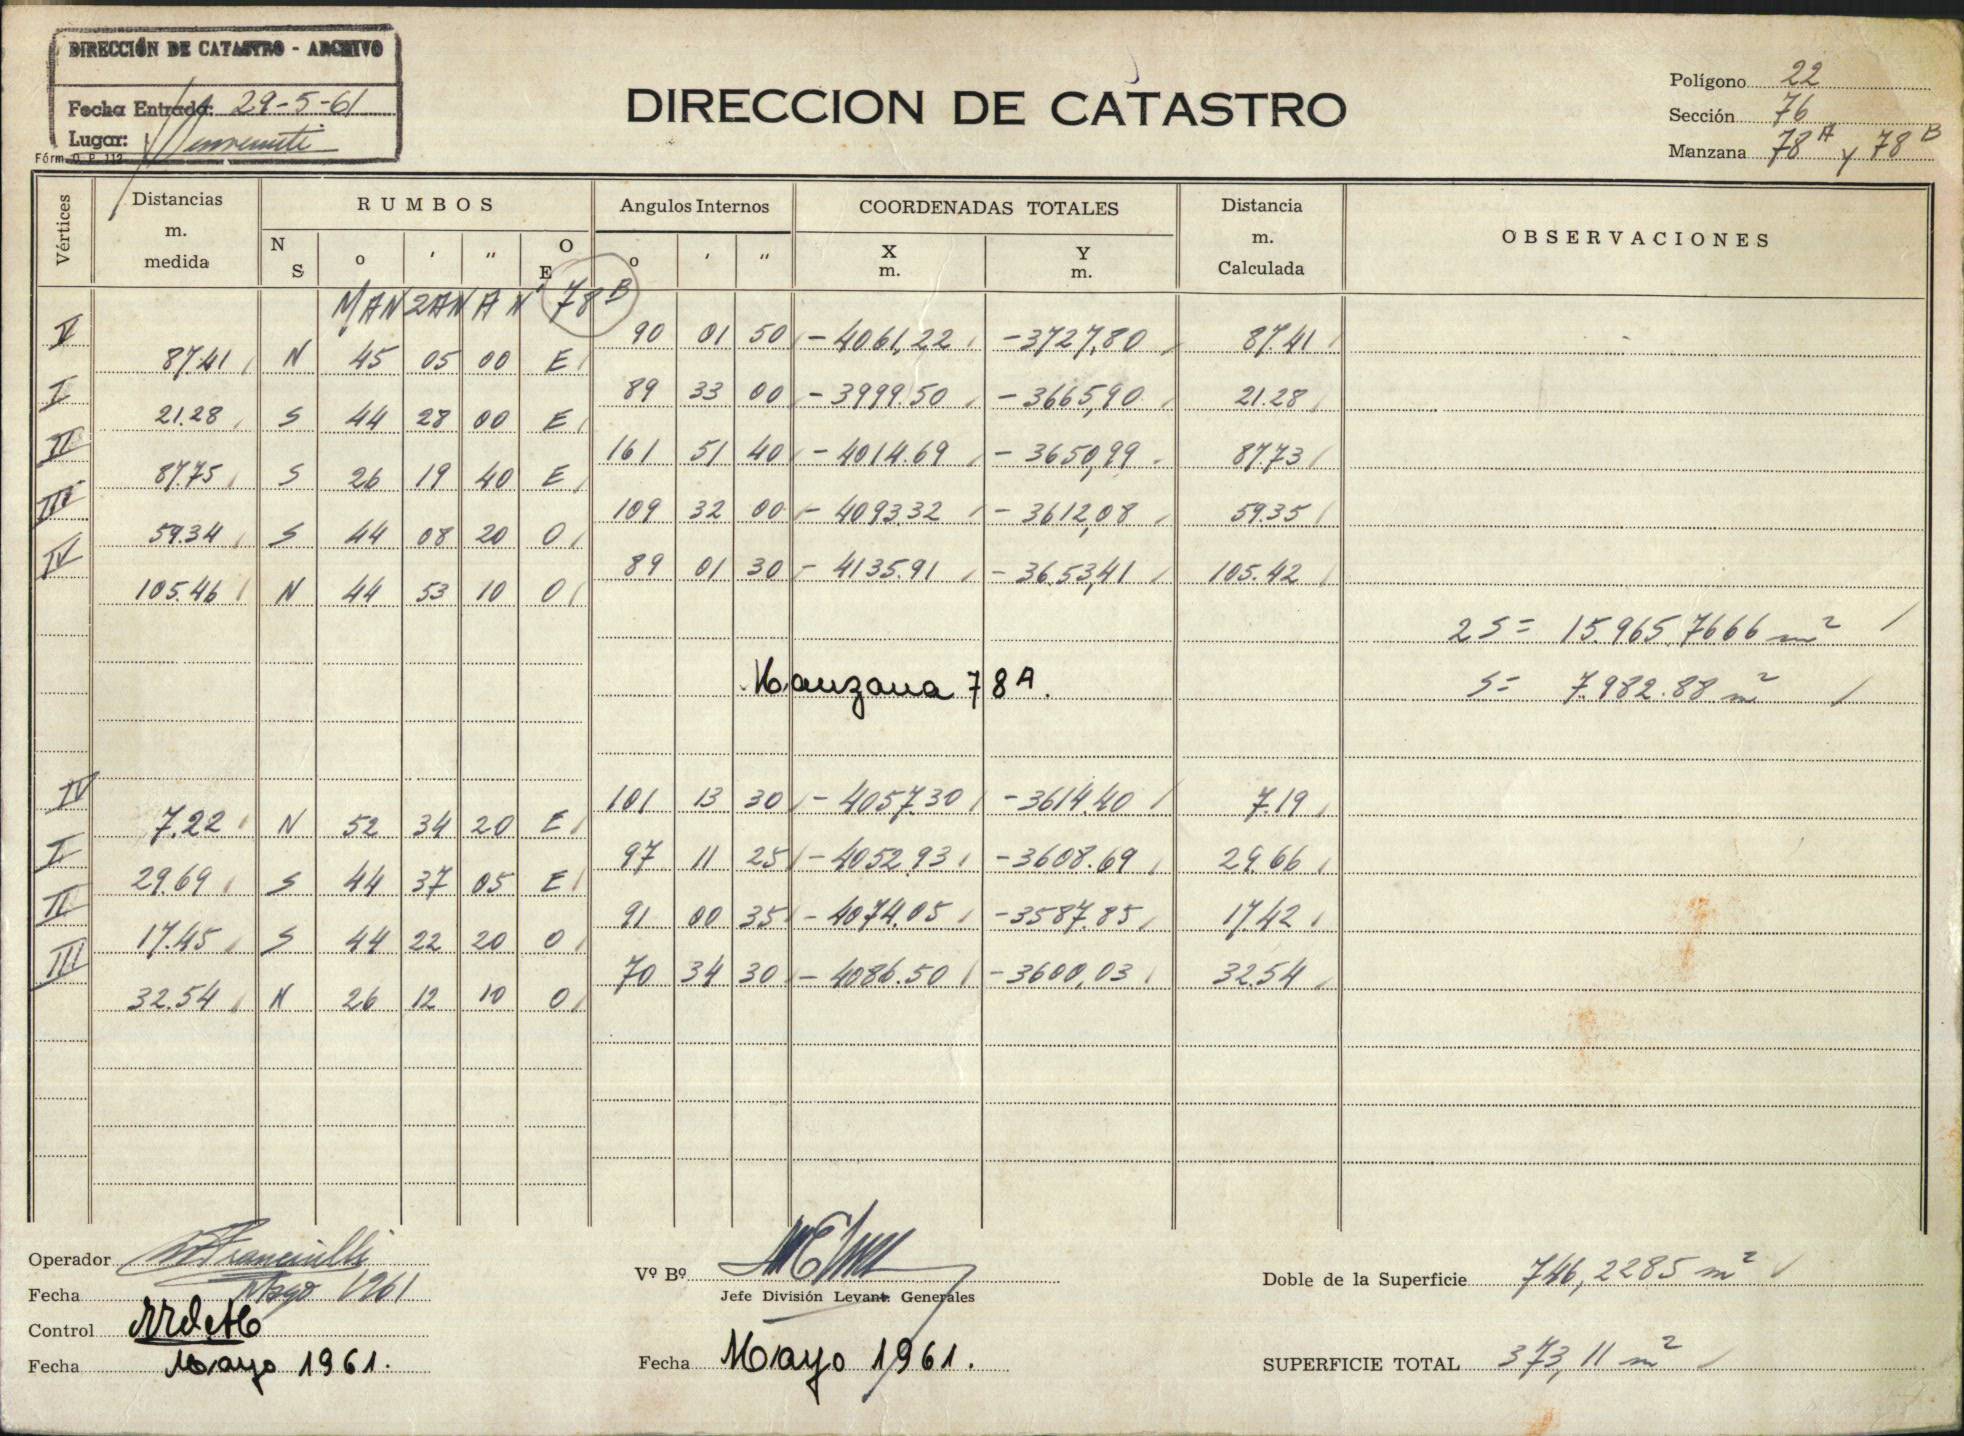 DIRECCIÓN DE CATASTRO - ARCHIVO
Fecha Entrada: 29-5-61
Lugar:
Fórm. O. P. 112
DIRECCION DE CATASTRO
Polígono 22
Sección 76
Manzana 78 A y 78 B
Vértices Distancias m. medida RUMBOS Angulos Internos COORDENADAS TOTALES Distancia m. Calculada OBSERVACIONES
N S o ' " O E o ' " X m. Y m.
MANZANA Nº 78 B
V 90 01 50 -4061,22 -3727,80 87.41
87.41 N 45 05 00 E
I 89 33 00 -3999.50 -3665,90 21.28
21.28 S 44 28 00 E
II 161 51 40 -4014.69 -3650,99 87.73
87.75 S 26 19 40 E
III 109 32 00 -4093.32 -3612,08 59.35
59.34 S 44 08 20 O
IV 89 01 30 -4135.91 -3653,41 105.42
105.46 N 44 53 10 O
2 S = 15.965,7666 m²
Manzana 78 A.
S = 7.982.88 m²
IV 101 13 30 -4057.30 -3614.40 7.19
7.22 N 52 34 20 E
I 97 11 25 -4052.93 -3608.69 29.66
29.69 S 44 37 05 E
II 91 00 35 -4074.05 -3587.85 17.42
17.45 S 44 22 20 O
III 70 34 30 -4086.50 -3600,03 32.54
32.54 N 26 12 10 O
Operador
Fecha Mayo 1961
Control
Fecha Mayo 1961.
Vº Bº
Jefe División Levant. Generales
Fecha Mayo 1961.
Doble de la Superficie 746,2285 m²
SUPERFICIE TOTAL 373,11 m²